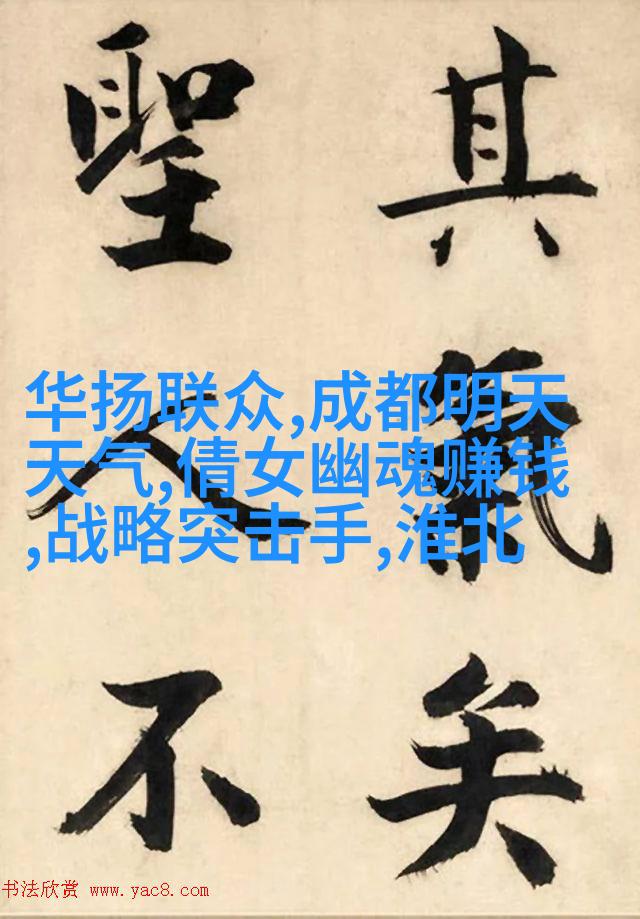 其氣矣
聖人不
华扬联众,成都明天
天气,倩女幽魂赚钱
,战略突击手,淮北
书法欣赏 www.yac8.com